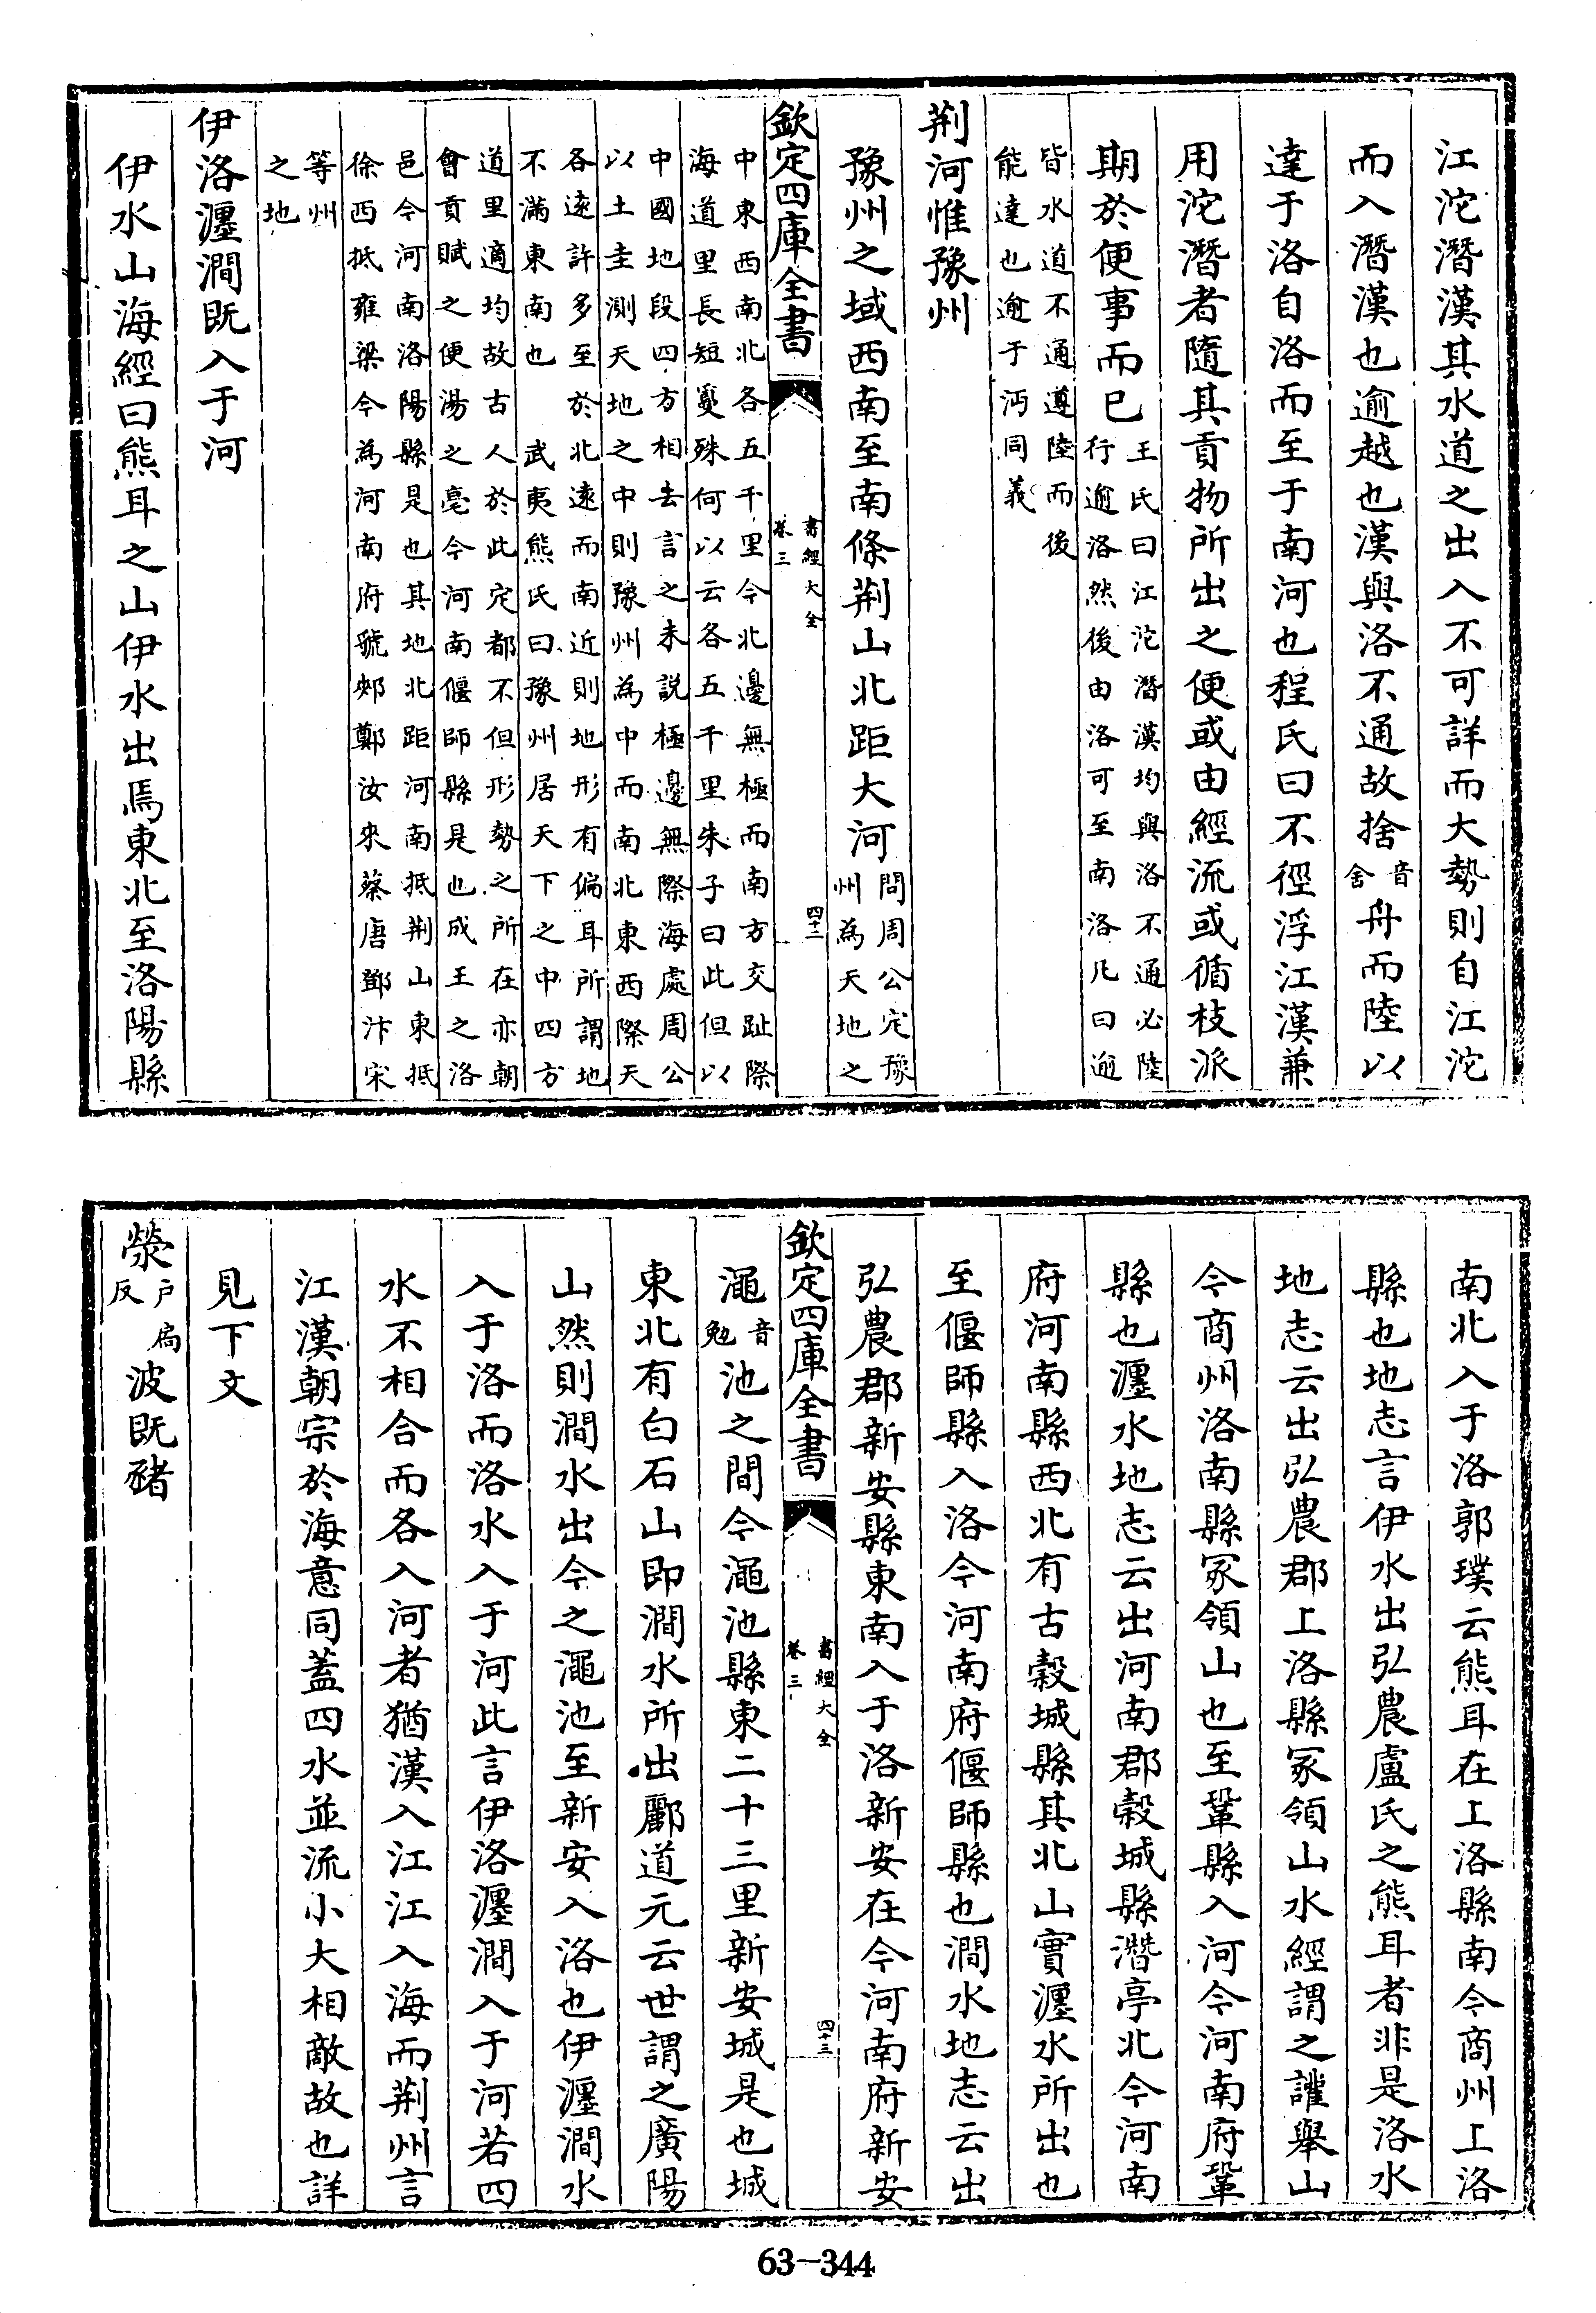 江沱潛漢其水道之出入不可詳而大勢則自江沱
而入潛漢也逾越也漢與洛不通故捨音舍舟而陸以
達于洛自洛而至于南河也程氏曰不徑浮江漢兼
用沱潛者隨其貢物所出之便或由經流或循枝派
期於便事而已王氏曰江沱潛漢均與洛不通必陸
行逾洛然後由洛可至南洛凡曰逾
皆水道不通遵陸而後
能達也逾于沔同義
荆河惟豫州
豫州之域西南至南條荆山北距大河問周公定豫
州為天地之
欽定四庫全書
書經大全
卷三
四十二
中東西南北各五千里今北邊無極而南方交趾際
海道里長短夐殊何以云各五千里朱子曰此但以
中國地段四方相去言之未說極邊無際海處周公
以土圭測天地之中則豫州為中而南北東西際天
各遠許多至於北遠而南近則地形有偏耳所謂地
不滿東南也 武夷熊氏曰豫州居天下之中四方
道里適均故古人於此定都不但形勢之所在亦朝
會貢賦之便湯之亳今河南偃師縣是也成王之洛
邑今河南洛陽縣是也其地北距河南抵荆山東抵
徐西抵雍梁今為河南府虢郟鄭汝來蔡唐鄧汴宋
等州
之地
伊洛瀍澗既入于河
伊水山海經曰熊耳之山伊水出焉東北至洛陽縣
南北入于洛郭璞云熊耳在上洛縣南今商州上洛
縣也地志言伊水出弘農盧氏之熊耳者非是洛水
地志云出弘農郡上洛縣冢領山水經謂之讙舉山
今商州洛南縣冢領山也至鞏縣入河今河南府鞏
縣也瀍水地志云出河南郡穀城縣潛亭北今河南
府河南縣西北有古穀城縣其北山實瀍水所出也
至偃師縣入洛今河南府偃師縣也澗水地志云出
弘農郡新安縣東南入于洛新安在今河南府新安
欽定四庫全書
書經大全
卷三
四十三
澠音勉池之間今澠池縣東二十三里新安城是也城
東北有白石山即澗水所出酈道元云世謂之廣陽
山然則澗水出今之澠池至新安入洛也伊瀍澗水
入于洛而洛水入于河此言伊洛瀍澗入于河若四
水不相合而各入河者猶漢入江江入海而荆州言
江漢朝宗於海意同蓋四水並流小大相敵故也詳
見下文
滎戶扃反波既豬
63-344